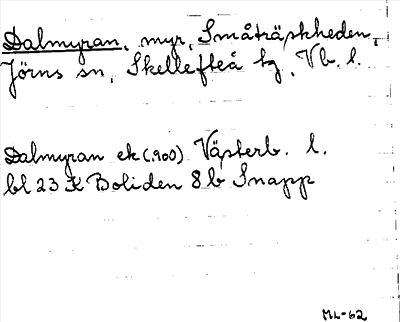 Dalmyran, myr, Småträskheden,
Jörns sn, Skellefteå tg, Vb. l.
Dalmyran ek (.900) Västerb. l.
bl 23 K Boliden 8 b Snapp
ML-62